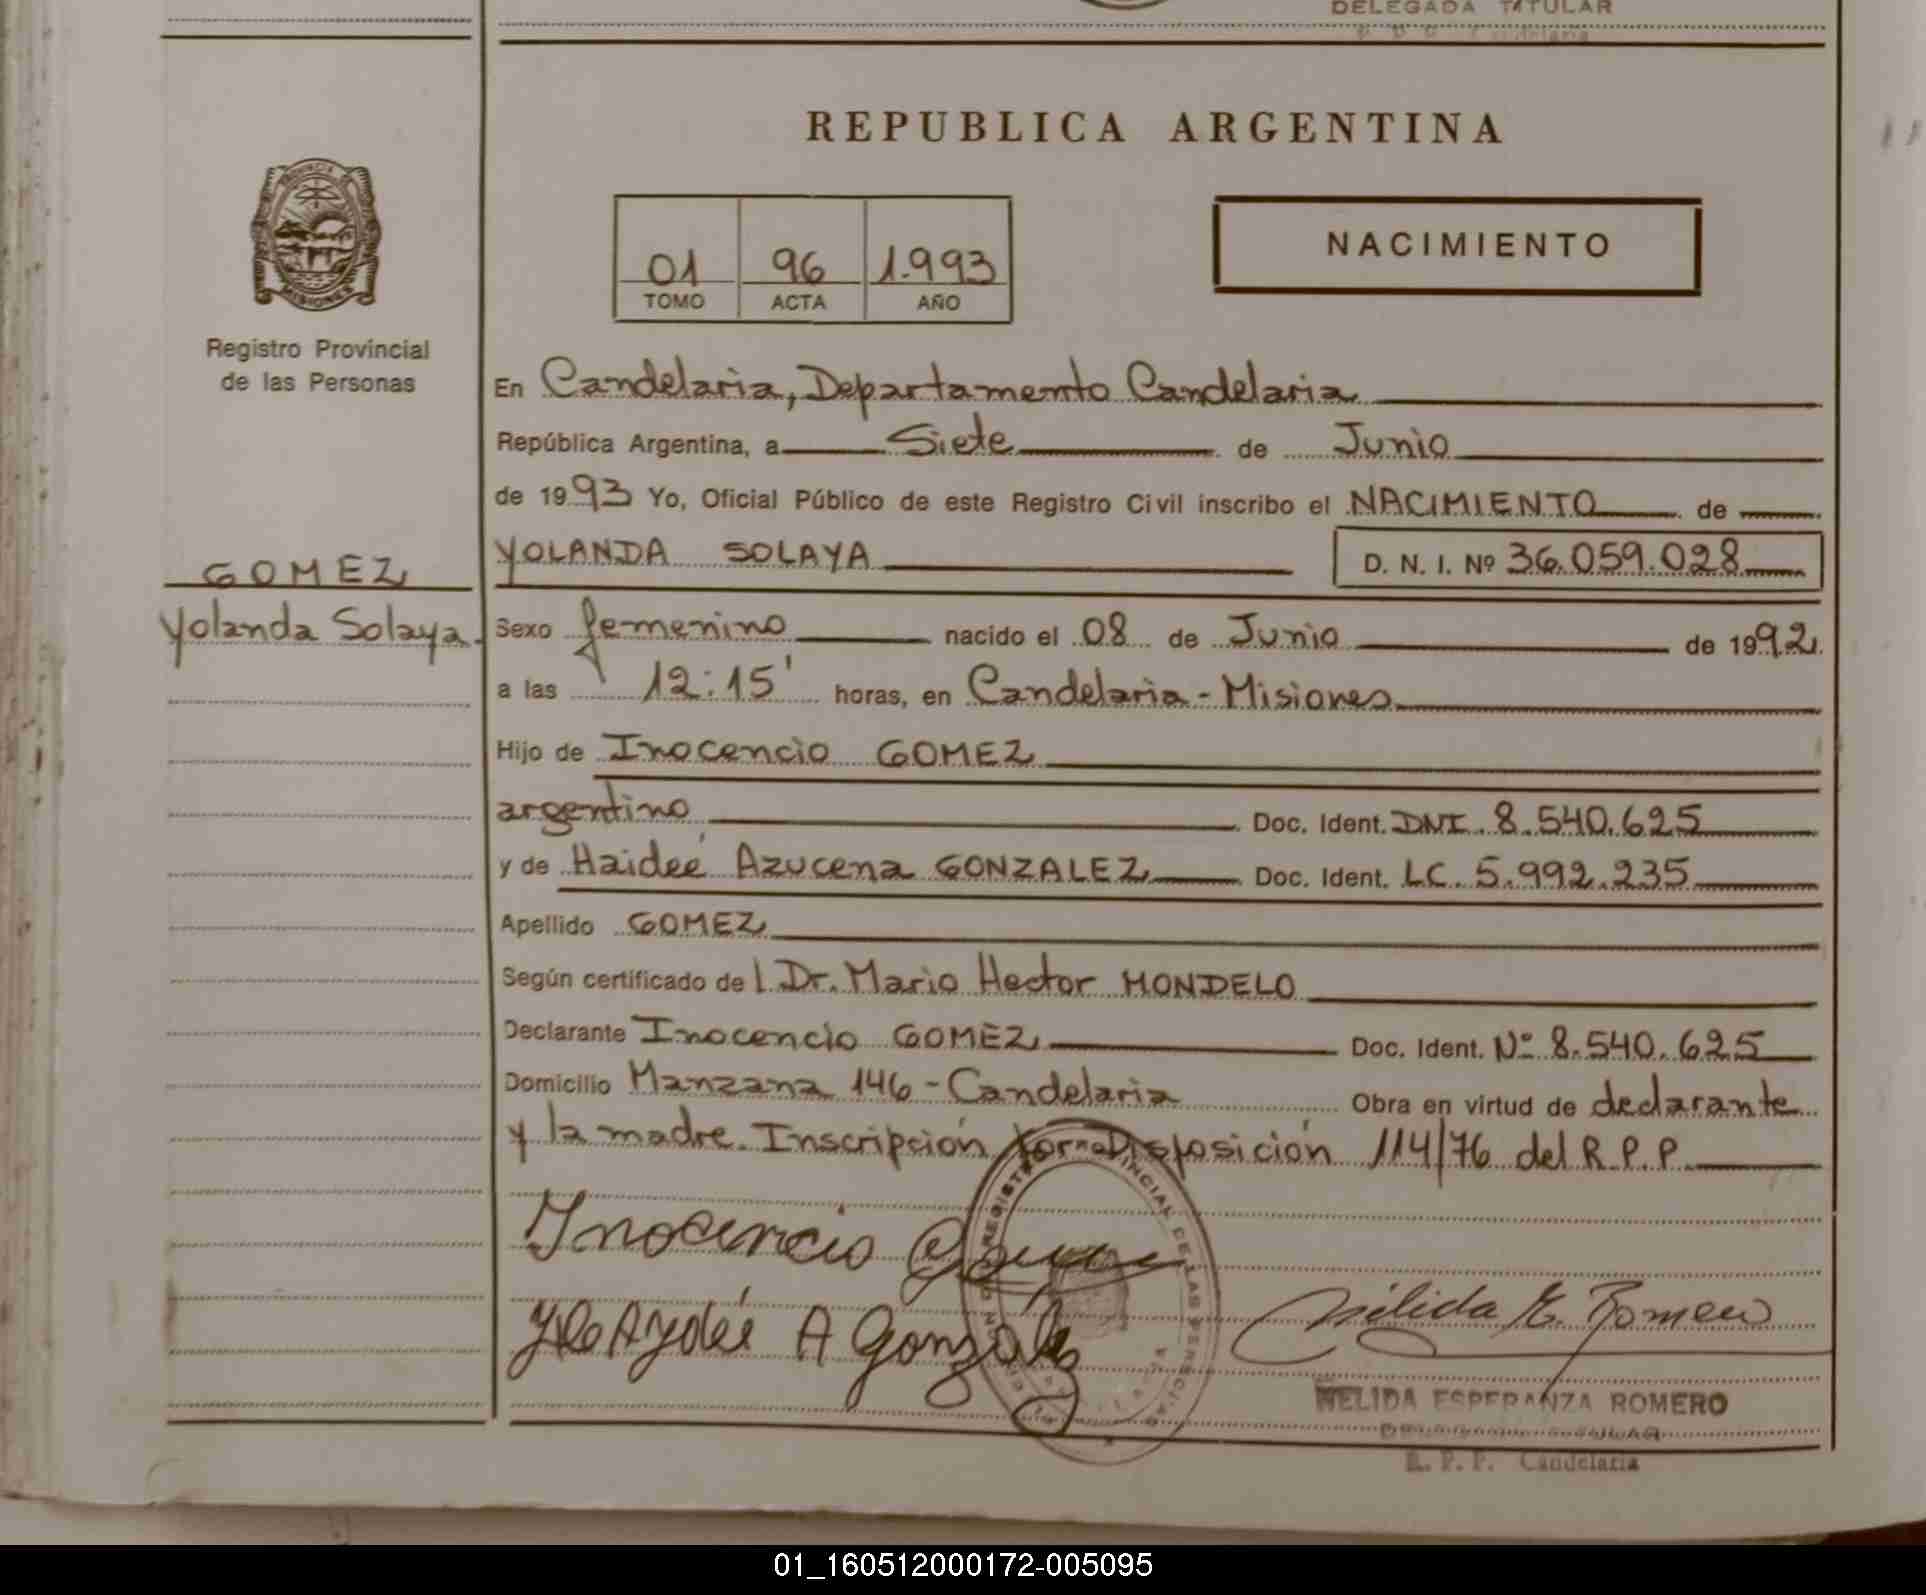 DELEGADA TITULAR
REPUBLICA ARGENTINA
PROVINCIA DE
MISIONES
Registro Provincial
de las Personas
01 96 1.993
TOMO ACTA AÑO
NACIMIENTO
En Candelaria, Departamento Candelaria
República Argentina, a Siete de Junio
de 1993 Yo, Oficial Público de este Registro Civil inscribo el NACIMIENTO de
GOMEZ
Yolanda Solaya.
YOLANDA SOLAYA D. N. I. Nº 36.059.028
Sexo femenino nacido el 08 de Junio de 1992.
a las 12:15' horas, en Candelaria - Misiones
Hijo de Inocencio GOMEZ
argentino Doc. Ident. DNI. 8.540.625
y de Haideé Azucena GONZALEZ Doc. Ident. LC. 5.992.235
Apellido GOMEZ
Según certificado del Dr. Mario Hector MONDELO
Declarante Inocencio GOMEZ Doc. Ident. Nº 8.540.625
Domicilio Manzana 146 - Candelaria Obra en virtud de declarante
y la madre. Inscripción forma Disposición 114/76 del R.P.P.
Inocencio Gomez
HeAydée A Gonzalez
Nélida E. Romero
NELIDA ESPERANZA ROMERO
DELEGADA TITULAR
R. P. P. Candelaria
01_160512000172-005095